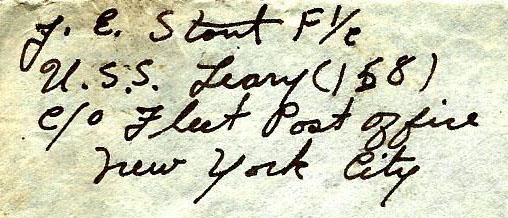 J. E. Stout F 1/c
U.S.S. Leary (158)
c/o Fleet Post Office
New York City